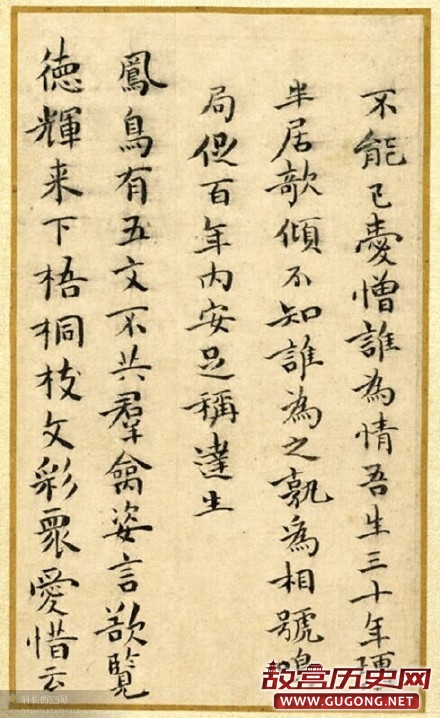 不能已憂憎誰為情吾生三十年㻌
半居欹傾不知誰為之孰為相號鳴
局促百年内安足稱達生
鳳鳥有五文不共羣禽姿言欲覽
德輝来下梧桐枝文彩眾愛惜云
故宫历史网
www.GUGONG.net